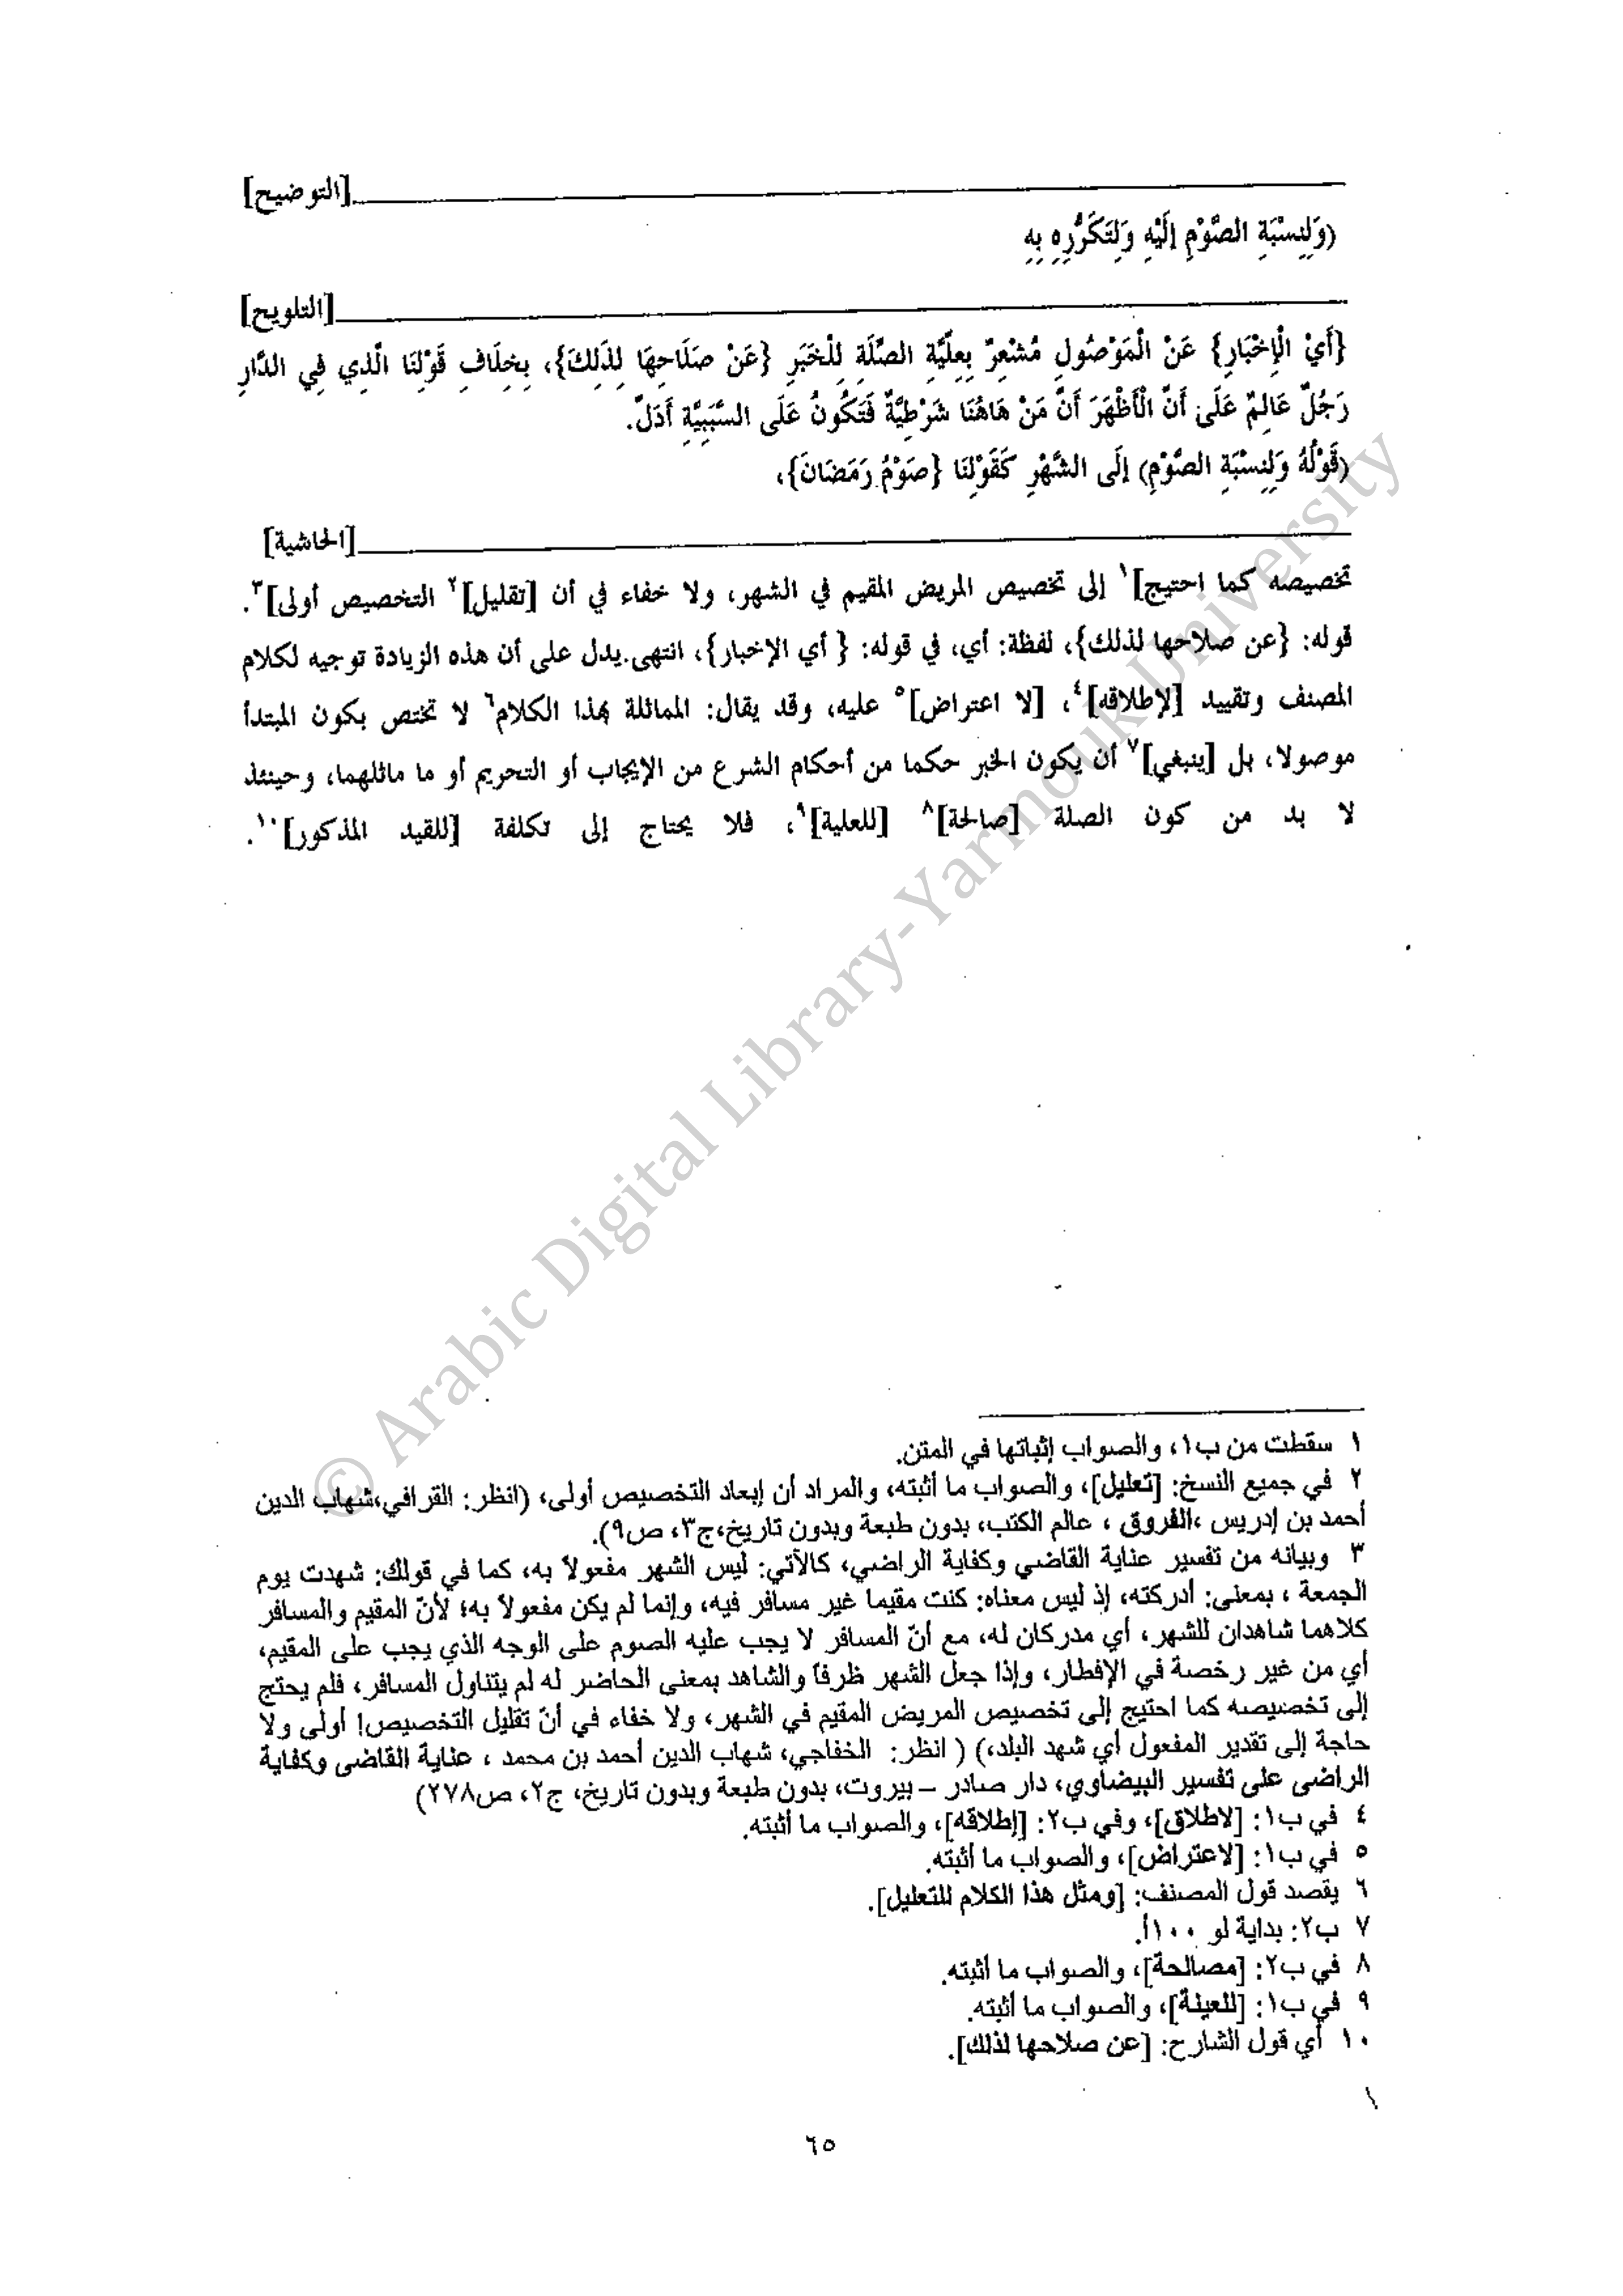 [التوضيح]
(وَلِنِسْبَةِ الصَّوْمِ إلَيْهِ وَلِتَكَرُّرِهِ بِهِ
[التلويح]
{أَيْ الْإِخْبَارِ} عَنْ الْمَوْصُولِ مُشْعِرٌ بِعِلِّيَّةِ الصِّلَةِ لِلْخَبَرِ {عَنْ صَلَاحِهَا لِذَلِكَ}، بِخِلَافِ قَوْلِنَا الَّذِي فِي الدَّارِ
رَجُلٌ عَالِمٌ عَلَى أَنَّ الْأَظْهَرَ أَنَّ مَنْ هَاهُنَا شَرْطِيَّةٌ فَتَكُونُ عَلَى السَّبَبِيَّةِ أَدَلَّ.
(قَوْلُهُ وَلِنِسْبَةِ الصَّوْمِ) إلَى الشَّهْرِ كَقَوْلِنَا {صَوْمُ رَمَضَانَ}،
[الحاشية]
تخصيصه كما احتيج]١ إلى تخصيص المريض المقيم في الشهر، ولا خفاء في أن [تقليل]٢ التخصيص أولى]٣.
قوله: {عن صلاحها لذلك}، لفظة: أي، في قوله: { أي الإخبار}، انتهى.يدل على أن هذه الزيادة توجيه لكلام
المصنف وتقييد [لإطلاقه]٤، [لا اعتراض]٥ عليه، وقد يقال: المماثلة بهذا الكلام٦ لا تختص بكون المبتدأ
موصولا، بل [ينبغي]٧ أن يكون الخبر حكما من أحكام الشرع من الإيجاب أو التحريم أو ما ماثلهما، وحينئذ
لا بد من كون الصلة [صالحة]٨ [للعلية]٩، فلا يحتاج إلى تكلفة [للقيد المذكور]١٠.
١ سقطت من ب١، والصواب إثباتها في المتن.
٢ في جميع النسخ: [تعليل]، والصواب ما أثبته، والمراد أن إبعاد التخصيص أولى، (انظر: القرافي،شهاب الدين
أحمد بن إدريس ،الفروق ، عالم الكتب، بدون طبعة وبدون تاريخ،ج٣، ص٩).
٣ وبيانه من تفسير عناية القاضي وكفاية الراضي، كالآتي: ليس الشهر مفعولاً به، كما في قولك: شهدت يوم
الجمعة ، بمعنى: أدركته، إذ ليس معناه: كنت مقيما غير مسافر فيه، وإنما لم يكن مفعولاً به؛ لأنّ المقيم والمسافر
كلاهما شاهدان للشهر، أي مدركان له، مع أنّ المسافر لا يجب عليه الصوم على الوجه الذي يجب على المقيم،
أي من غير رخصة في الإفطار، وإذا جعل الشهر ظرفاً والشاهد بمعنى الحاضر له لم يتناول المسافر، فلم يحتج
إلى تخصيصه كما احتيج إلى تخصيص المريض المقيم في الشهر، ولا خفاء في أنّ تقليل التخصيص! أولى ولا
حاجة إلى تقدير المفعول أي شهد البلد،) ( انظر: الخفاجي، شهاب الدين أحمد بن محمد ، عناية القاضى وكفاية
الراضى على تفسير البيضاوي، دار صادر – بيروت، بدون طبعة وبدون تاريخ، ج٢، ص٢٧٨)
٤ في ب١: [لاطلاق]، وفي ب٢: [إطلاقه]، والصواب ما أثبته.
٥ في ب١: [لاعتراض]، والصواب ما أثبته.
٦ يقصد قول المصنف: [ومثل هذا الكلام للتعليل].
٧ ب٢: بداية لو ١٠٠أ.
٨ في ب٢: [مصالحة]، والصواب ما أثبته.
٩ في ب١: [للعينة]، والصواب ما أثبته.
١٠ أي قول الشارح: [عن صلاحها لذلك].
٦٥
© Arabic Digital Library-Yarmouk University